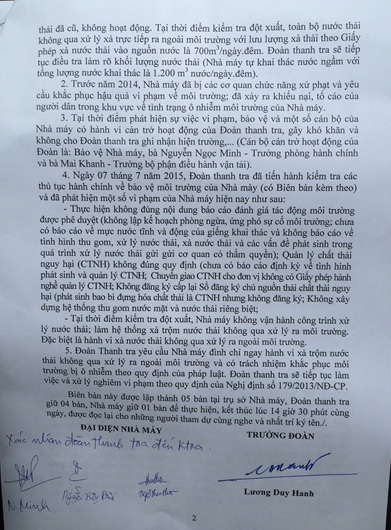 thải đã cũ, không hoạt động. Tại thời điểm kiểm tra đột xuất, toàn bộ nước thải
không qua xử lý xả trực tiếp ra ngoài môi trường với lưu lượng xả thải theo Giấy
phép xả nước thải vào nguồn nước là 700m³/ngày.đêm. Đoàn thanh tra sẽ tiếp
tục điều tra làm rõ khối lượng nước thải (Nhà máy tự khai thác nước ngầm với
tổng lượng nước khai thác là 1.200 m³ nước/ngày.đêm).
2. Trước năm 2014, Nhà máy đã bị các cơ quan chức năng xử phạt và yêu
cầu khắc phục hậu quả vi phạm về môi trường; đã xảy ra khiếu nại, tố cáo của
người dân trong khu vực về tình trạng ô nhiễm môi trường của Nhà máy.
3. Tại thời điểm phát hiện sự việc vi phạm, bảo vệ và một số cán bộ của
Nhà máy có hành vi cản trở hoạt động của Đoàn thanh tra, gây khó khăn và
không cho Đoàn thanh tra ghi nhận hiện trường,... (Cán bộ cản trở hoạt động của
Đoàn là: Bảo vệ Nhà máy, bà Nguyễn Ngọc Minh - Trưởng phòng hành chính
và bà Mai Khanh - Trưởng bộ phận điều hành vận tải).
4. Ngày 07 tháng 7 năm 2015, Đoàn thanh tra đã tiến hành kiểm tra các
thủ tục hành chính về bảo vệ môi trường của Nhà máy (có Biên bản kèm theo)
và đã phát hiện một số vi phạm của Nhà máy hiện nay như sau:
- Thực hiện không đúng nội dung báo cáo đánh giá tác động môi trường
được phê duyệt (không lập kế hoạch phòng ngừa, ứng phó sự cố môi trường; chưa
có báo cáo về mực nước tĩnh và động của giếng khai thác và không báo cáo về
tình hình thu gom, xử lý nước thải, xả nước thải và các vấn đề phát sinh trong
quá trình xử lý nước thải gửi cơ quan có thẩm quyền); Quản lý chất thải
nguy hại (CTNH) không đúng quy định (chưa có báo cáo định kỳ về tình hình
phát sinh và quản lý CTNH; Chuyển giao CTNH cho đơn vị không có Giấy phép hành
nghề quản lý CTNH; Không đăng ký cấp lại Sổ đăng ký chủ nguồn thải chất thải nguy
hại (phát sinh bao bì đựng hóa chất thải là CTNH nhưng không đăng ký; Không xây
dựng hệ thống thu gom nước mặt và nước thải riêng biệt;
- Tại thời điểm kiểm tra đột xuất, Nhà máy không vận hành công trình xử
lý nước thải; làm hệ thống xả trộm nước thải không qua xử lý ra môi trường.
Đặc biệt là hành vi xả nước thải không qua xử lý ra ngoài môi trường.
5. Đoàn Thanh tra yêu cầu Nhà máy đình chỉ ngay hành vi xả trộm nước
thải không qua xử lý ra ngoài môi trường và có trách nhiệm khắc phục môi
trường bị ô nhiễm theo quy định của pháp luật. Đoàn thanh tra sẽ tiếp tục làm
việc và xử lý nghiêm vi phạm theo quy định của Nghị định số 179/2013/NĐ-CP.
Biên bản này được lập thành 05 bản tại trụ sở Nhà máy, Đoàn thanh tra
giữ 04 bản, Nhà máy giữ 01 bản để thực hiện, kết thúc lúc 14 giờ 30 phút cùng
ngày, được đọc lại cho những người tham dự cùng nghe và nhất trí ký tên./.
ĐẠI DIỆN NHÀ MÁY TRƯỞNG ĐOÀN
Xác nhận đoàn thanh tra đến ktra.
N Minh
Lương Duy Hanh
2